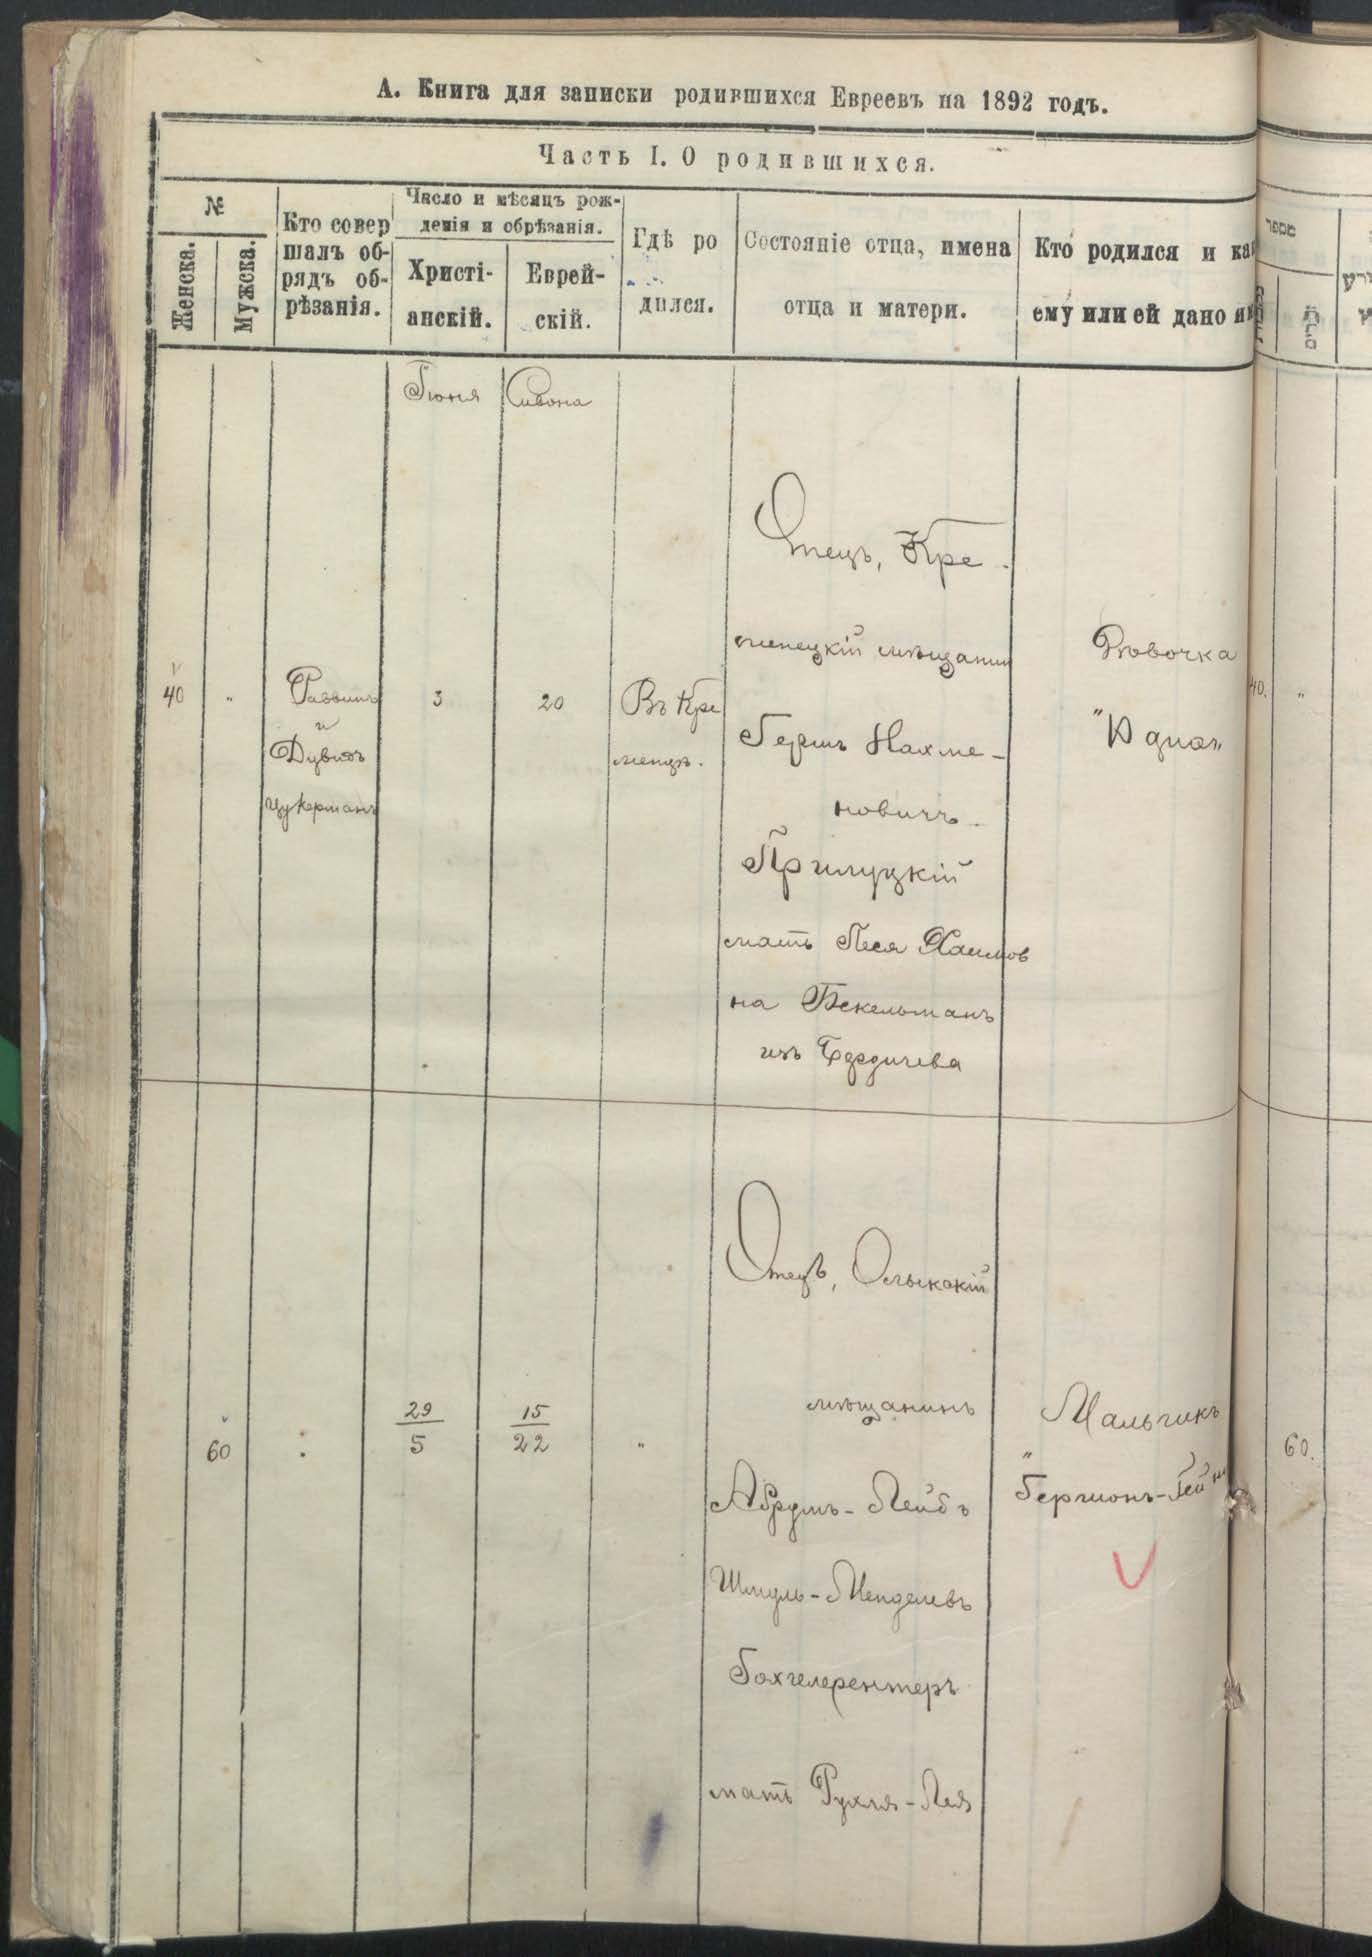 А. Книга для записки родившихся Евреевъ на 1892 годъ.
Часть I. О родившихся.
№
Женска.
Мужска.
Кто совер
шалъ об-
рядъ об-
рѣзанія.
Число и мѣсяцъ рож-
денія и обрѣзанія.
Христі-
анскій.
Еврей-
скій.
Гдѣ ро
дился.
Состояніе отца, имена
отца и матери.
Кто родился и ка
ему или ей дано
מספר
Іюня
Сивона
40
"
Раввинъ
и
Дувидъ
Цукерманъ
3
20
Въ Кре
менцѣ.
Отецъ, Кре-
менецкій мѣщанин
Гершъ Нахме-
новичъ
Прилуцкій
мать Песя Хаимов
на Бекельманъ
изъ Бердичева
Дѣвочка
"Идиа"
40.
"
60
29
5
15
22
"
Отецъ, Олыкскій
мѣщанинъ
Абрумъ-Лейбъ
Шмуль-Менделевъ
мать Рухля-Лея
Мальчикъ
60.